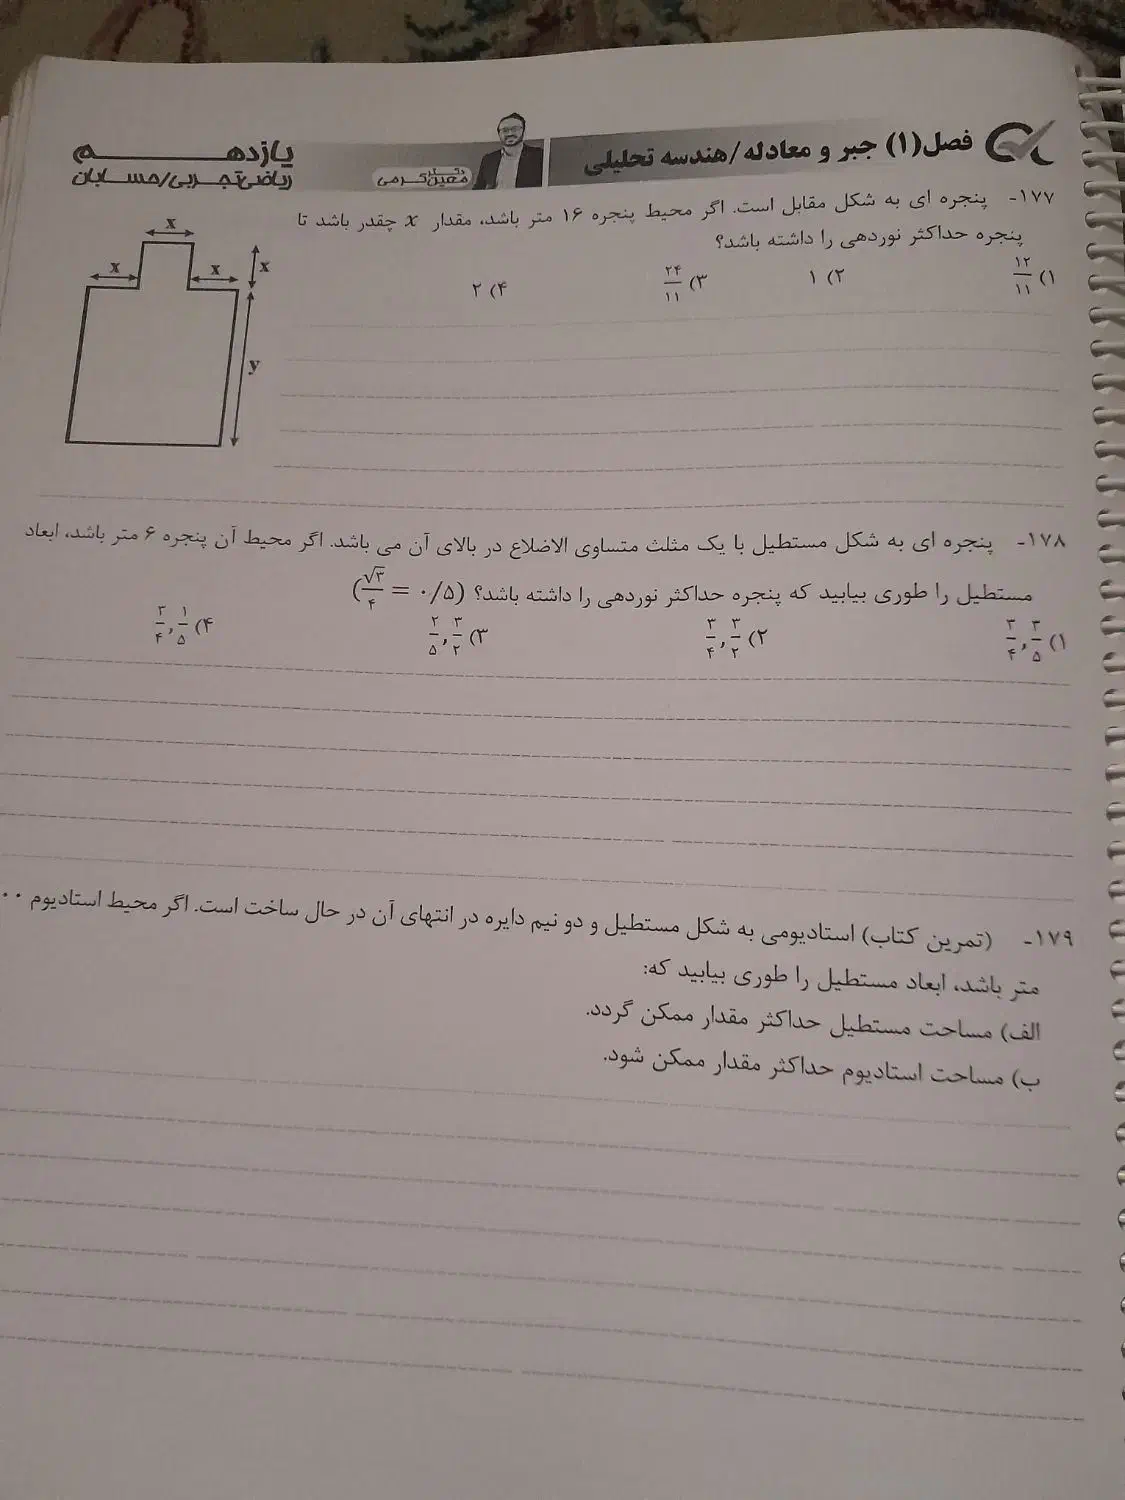 فصل(۱) جبر و معادله/هندسه تحلیلی
دکتر معین کرمی
یازدهم
ریاضی‌تجربی/حسابان
۱۷۷- پنجره ای به شکل مقابل است. اگر محیط پنجره ۱۶ متر باشد، مقدار x چقدر باشد تا
پنجره حداکثر نوردهی را داشته باشد؟
۱) ۱۲/۱۱ ۲) ۱ ۳) ۲۴/۱۱ ۴) ۲
x
x x x
y
۱۷۸- پنجره ای به شکل مستطیل با یک مثلث متساوی الاضلاع در بالای آن می باشد. اگر محیط آن پنجره ۶ متر باشد، ابعاد
مستطیل را طوری بیابید که پنجره حداکثر نوردهی را داشته باشد؟ (√۳/۴ = ۰/۵)
۱) ۳/۵ , ۳/۴ ۲) ۳/۲ , ۳/۴ ۳) ۳/۲ , ۲/۵ ۴) ۱/۵ , ۳/۴
۱۷۹- (تمرین کتاب) استادیومی به شکل مستطیل و دو نیم دایره در انتهای آن در حال ساخت است. اگر محیط استادیوم ۰۰
متر باشد، ابعاد مستطیل را طوری بیابید که:
الف) مساحت مستطیل حداکثر مقدار ممکن گردد.
ب) مساحت استادیوم حداکثر مقدار ممکن شود.